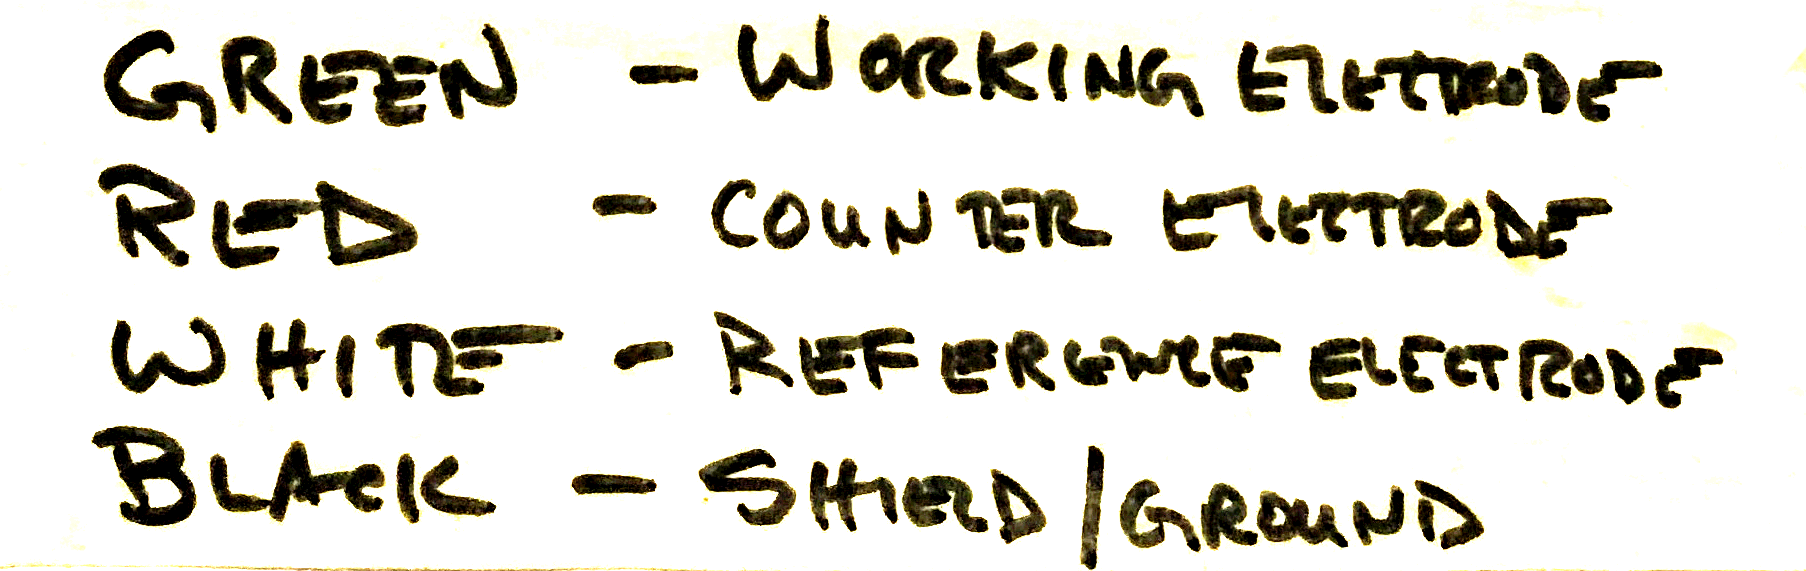 GREEN - WORKING ELECTRODE
RED - COUNTER ELECTRODE
WHITE - REFERENCE ELECTRODE
BLACK - SHIELD/GROUND